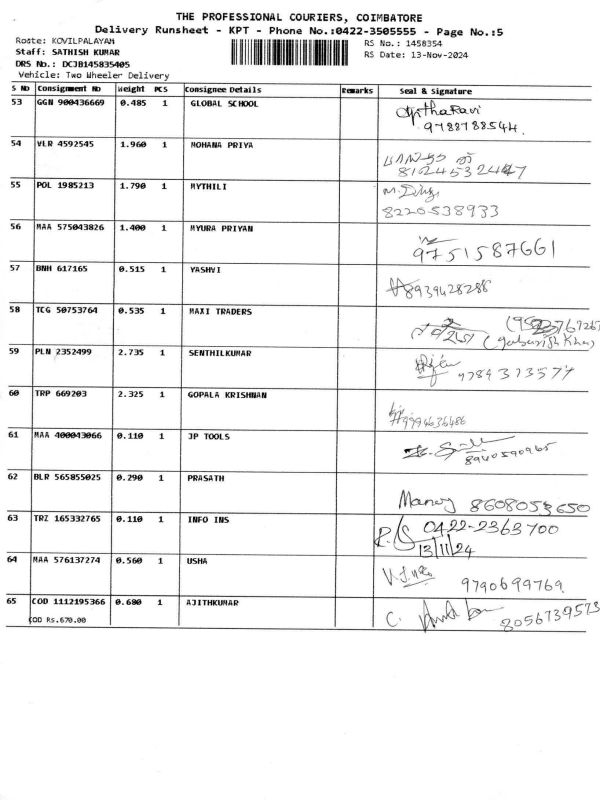 THE PROFESSIONAL COURIERS, COIMBATORE
Delivery Runsheet - KPT - Phone No.:0422-3505555 - Page No.:5
Route: KOVILPALAYAM RS No.: 1458354
Staff: SATHISH KUMAR RS Date: 13-Nov-2024
DRS No.: DCJB145835405
Vehicle: Two Wheeler Delivery
S No Consignment No Weight PCS Consignee Details Remarks Seal & Signature
53 GGN 900436669 0.485 1 GLOBAL SCHOOL
9788788544.
54 VLR 4592545 1.960 1 MOHANA PRIYA
55 POL 1985213 1.790 1 MYTHILI
8220538933
56 MAA 575043826 1.400 1 MYURA PRIYAN
9751587661
57 BNH 617165 0.515 1 YASHVI
8939428288
58 TCG 50753764 0.535 1 MAXI TRADERS
59 PLN 2352499 2.735 1 SENTHILKUMAR
9789313577
60 TRP 669203 2.325 1 GOPALA KRISHNAN
9994636486
61 MAA 400043066 0.110 1 JP TOOLS
8940590965
62 BLR 565855025 0.290 1 PRASATH
Manoj 8608053650
63 TRZ 165332765 0.110 1 INFO INS
0422-2363700
13/11/24
64 MAA 576137274 0.560 1 USHA
9790699769.
65 COD 1112195366 0.680 1 AJITHKUMAR
C. 8056739573
COD Rs.670.00